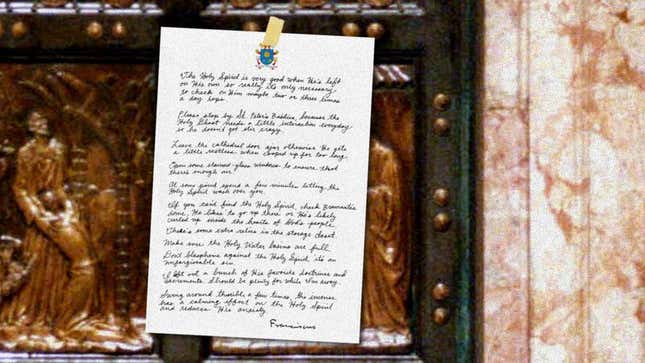 The Holy Spirit is very good when He's left
on His own so really it's only necessary
to check on Him maybe two or three times
a day tops.
Please stop by St. Peter's Basilica because the
Holy Ghost needs a little interaction everyday
so he doesn't get stir crazy.
Leave the cathedral door ajar otherwise He gets
a little restless when cooped up for too long.
Open some stained-glass windows to ensure that
there's enough air.
At some point spend a few minutes letting the
Holy Spirit wash over you.
If you can't find the Holy Spirit, check Bramante's
dome. He likes to go up there or He's likely
curled up inside the hearts of God's people.
There's some extra relics in the storage closet.
Make sure the Holy Water basins are full.
Don't blaspheme against the Holy Spirit, it's an
unforgivable sin.
I left out a bunch of His favorite doctrines and
Sacraments. Should be plenty for while I'm away.
Swing around thurible a few times, the incense
has a calming effect on the Holy Spirit
and reduces His anxiety.
Franciscus